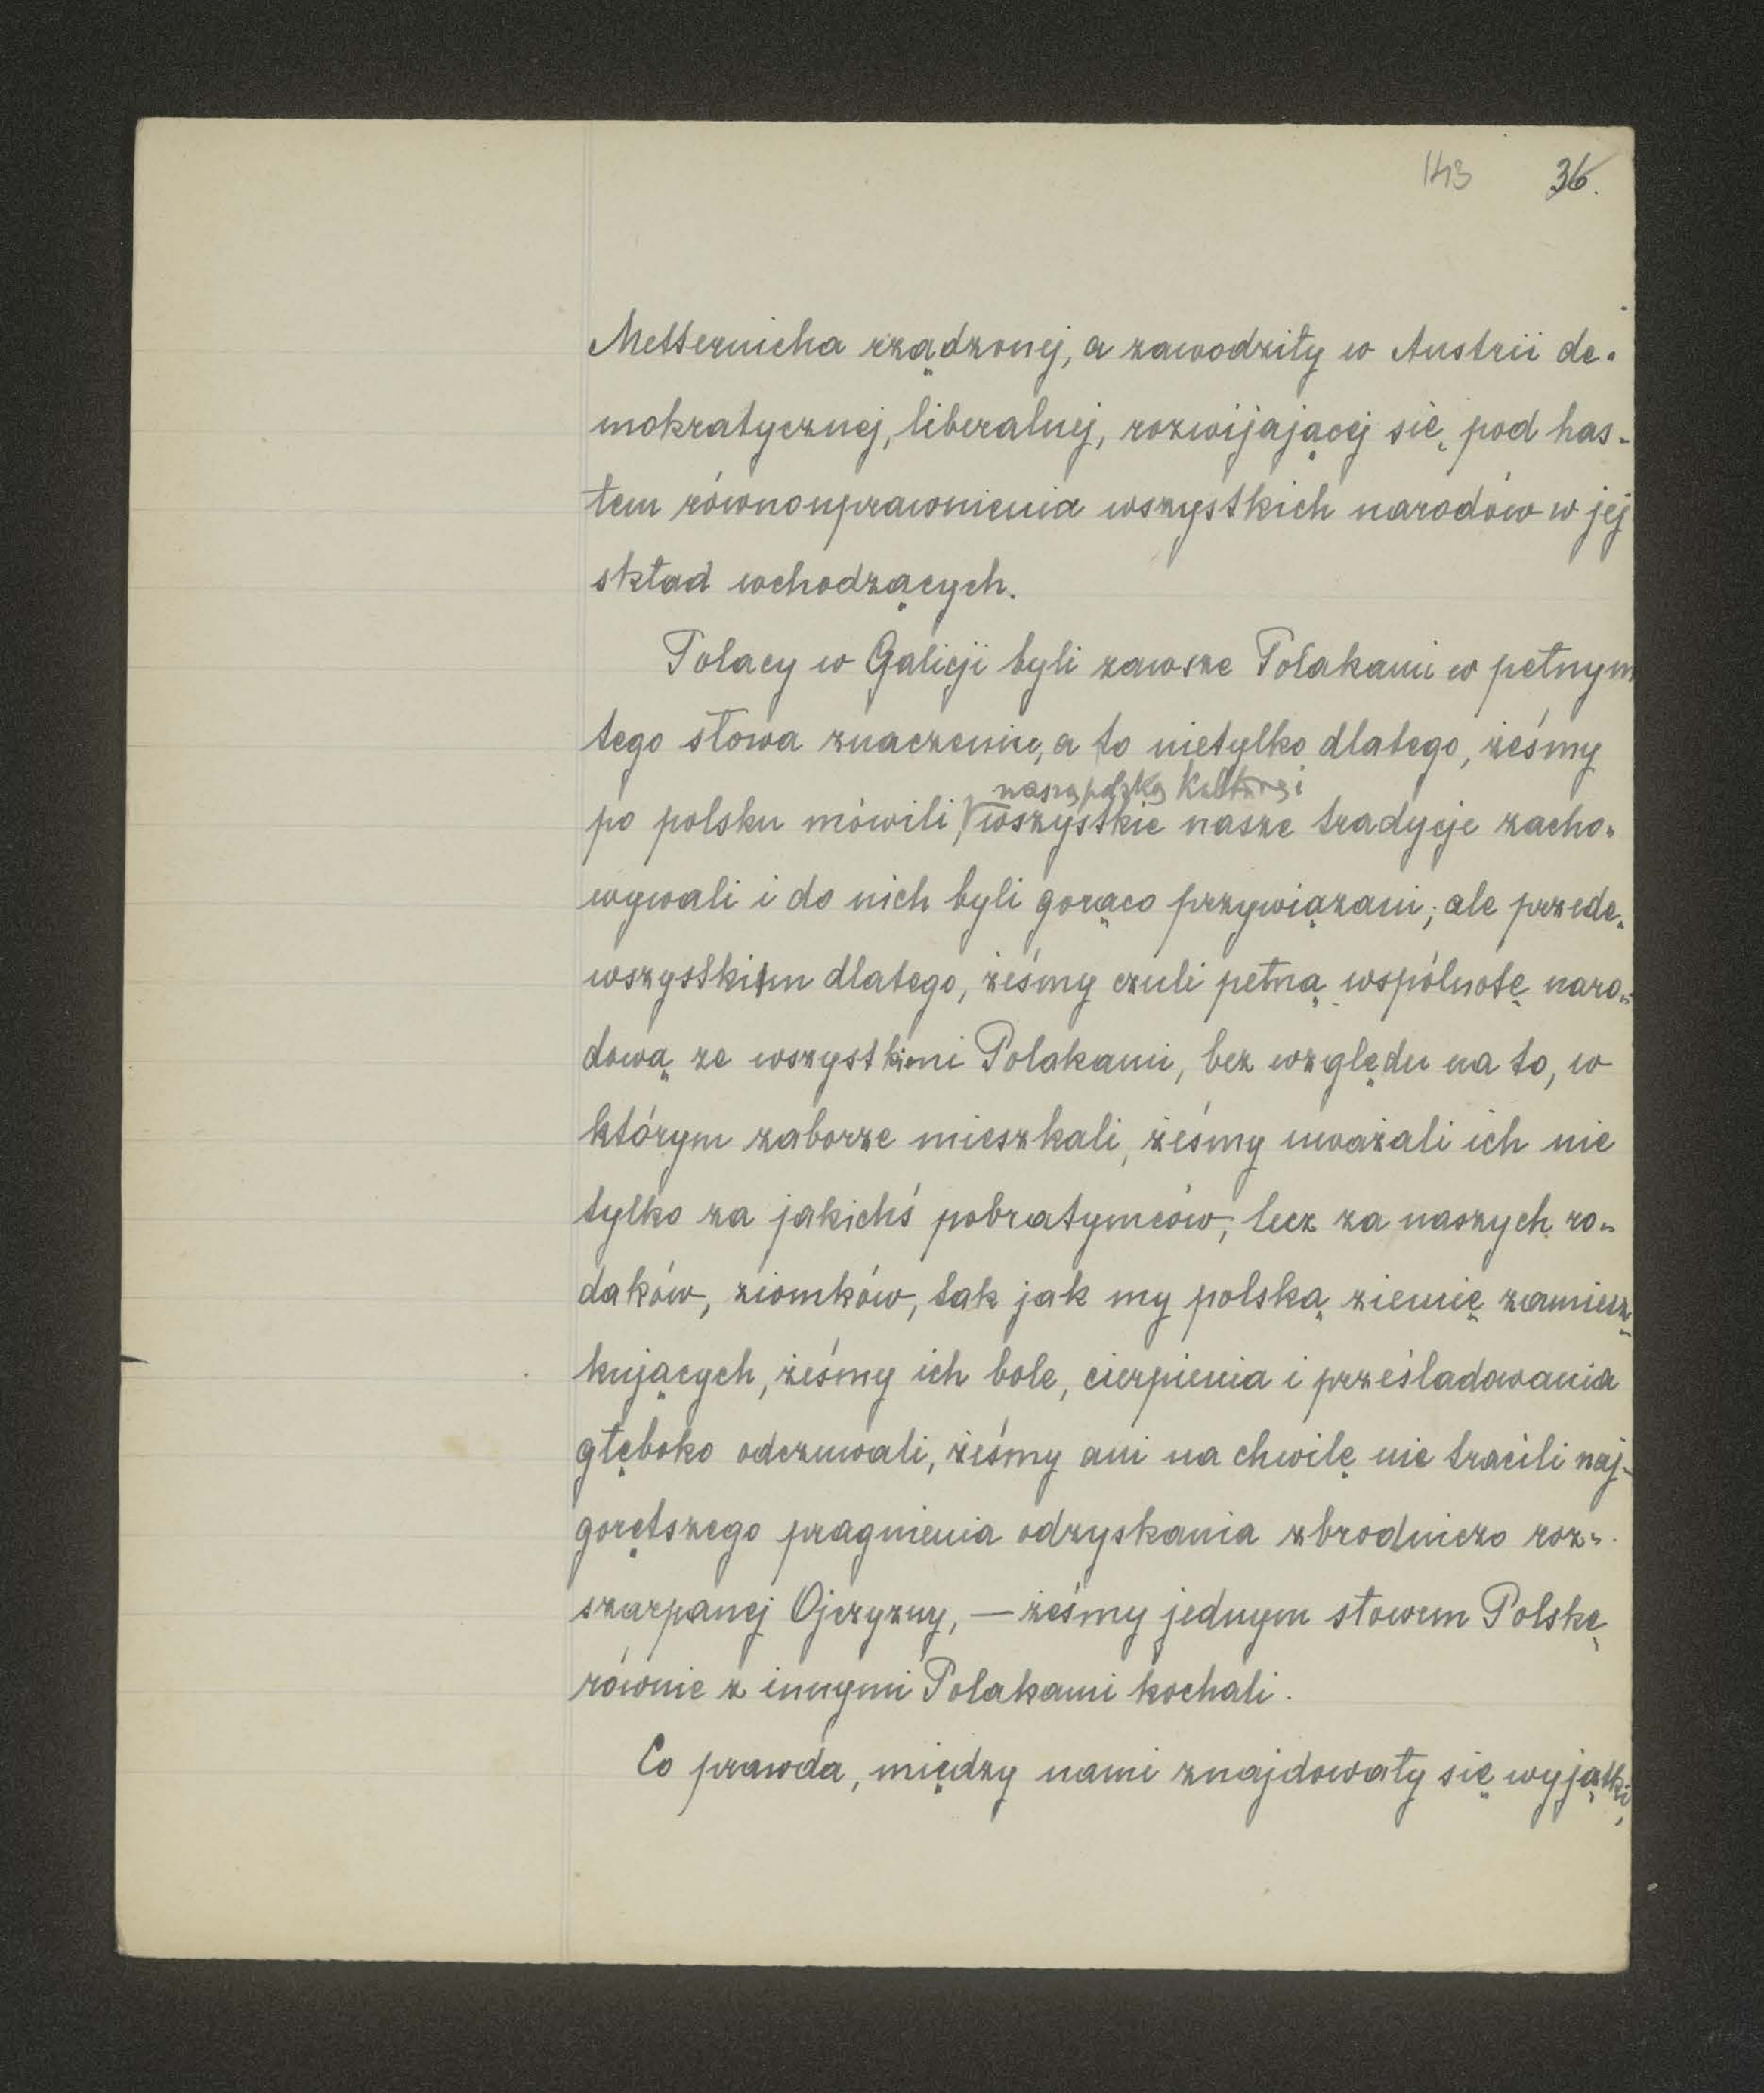 143 36.
Metternicha rządzonej, a zawodziły w Austrii de-
mokratycznej, liberalnej, rozwijającej się pod has-
łem równouprawnienia wszystkich narodów w jej
skład wchodzących.
Polacy w Galicji byli zawsze Polakami w pełnym
tego słowa znaczeniu, a to nietylko dlatego, żeśmy
naszą polską kulturę i
po polsku mówili, wszystkie nasze tradycje zacho-
wywali i do nich byli gorąco przywiązani; ale przede-
wszystkim dlatego, żeśmy czuli pełną wspólnotę naro-
dową ze wszystkimi Polakami, bez względu na to, w
którym zaborze mieszkali, żeśmy uważali ich nie
tylko za jakichś pobratymców, lecz za naszych ro-
daków, ziomków, tak jak my polską ziemię zamiesz-
kujących, żeśmy ich bole, cierpienia i prześladowania
głęboko odczuwali, żeśmy ani na chwilę nie tracili naj-
gorętszego pragnienia odzyskania zbrodniczo roz-
szarpanej Ojczyzny, — żeśmy jednym słowem Polskę
równie z innymi Polakami kochali.
Co prawda, między nami znajdowały się wyjątki,